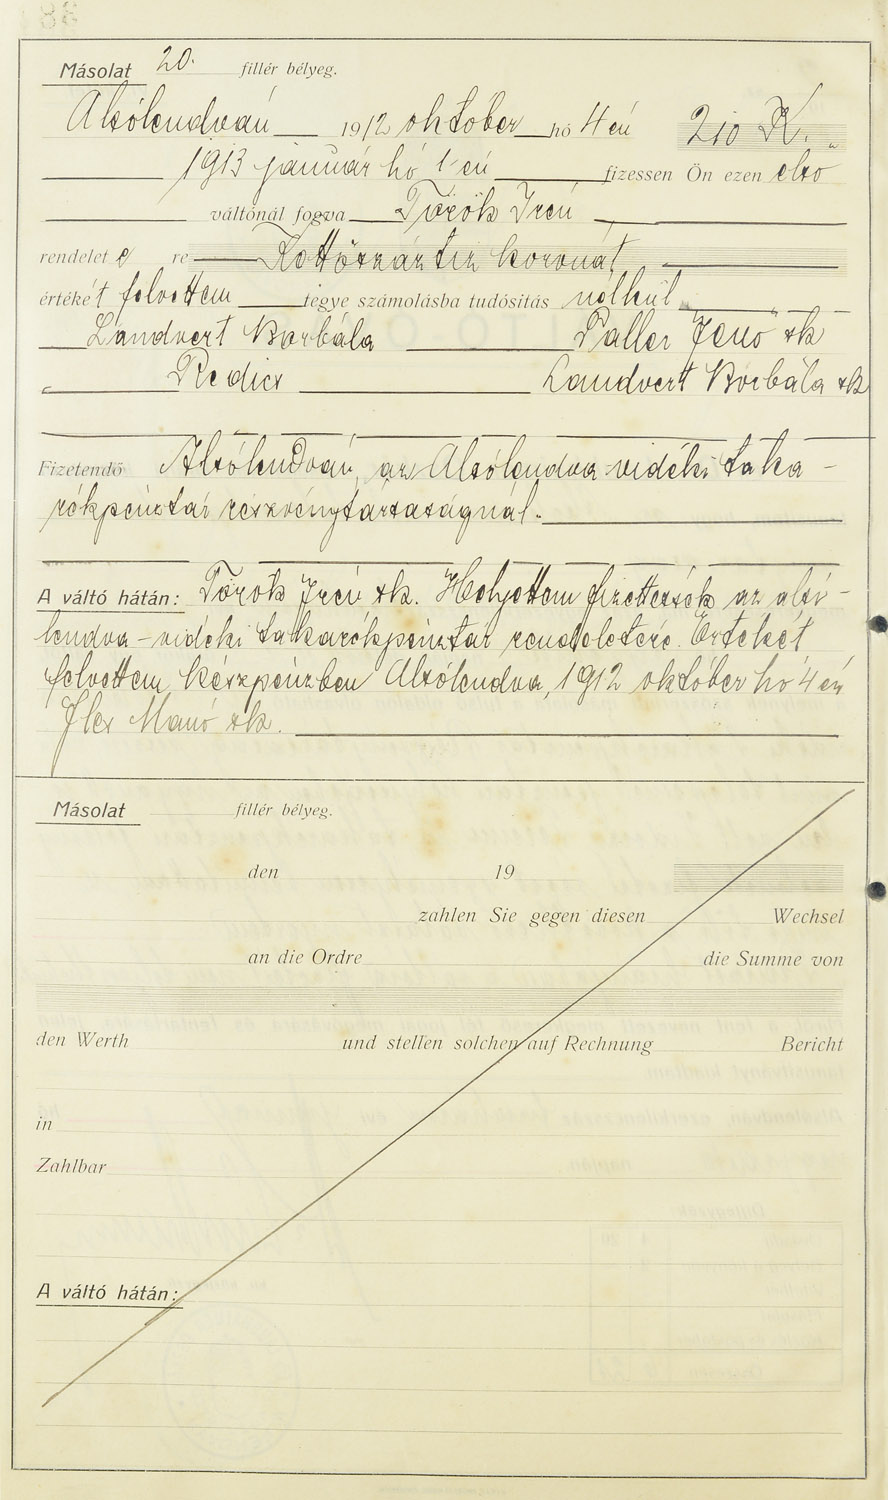 Másolat 20. fillér bélyeg.
Alsólendván 1912 október hó 4én 210 K.
1913 január hó 1-én fizessen Ön ezen első
váltónál fogva Török Irén
rendelet e re Kettőszáztiz koronát
értékét felvettem tegye számolásba tudósitás nélkül
Landvert Borbála Paller Jenő sk
Redics Landvert Borbála sk
Fizetendő Alsólendván, az Alsólendva-vidéki taka-
rékpénztár részvénytársaságnál.
A váltó hátán: Török Irén sk. Helyettem fizettessék az alsó-
lendva-vidéki takarékpénztár rendeletére. Értékét
felvettem készpénzben Alsólendva, 1912 október hó 4én
Manó sk.
Másolat fillér bélyeg.
den 19
zahlen Sie gegen diesen Wechsel
an die Ordre die Summe von
den Werth und stellen solchen auf Rechnung Bericht
in
Zahlbar
A váltó hátán: